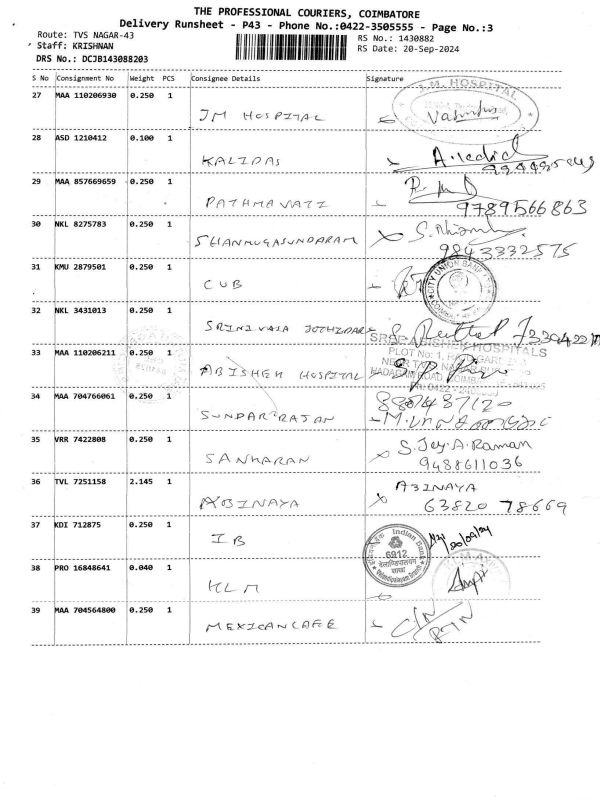 THE PROFESSIONAL COURIERS, COIMBATORE
Delivery Runsheet - P43 - Phone No.:0422-3505555 - Page No.:3
Route: TVS NAGAR-43
Staff: KRISHNAN
DRS No.: DCJB143088203
RS No.: 1430882
RS Date: 20-Sep-2024
S No Consignment No Weight PCS Consignee Details Signature
27 MAA 110206930 0.250 1 JM HOSPITAL J.M. HOSPITAL
28 ASD 1210412 0.100 1 KALIDAS
29 MAA 857669659 0.250 1 PATHMAVATI 9789566863
30 NKL 8275783 0.250 1 SHANMUGASUNDARAM 9843332575
31 KMU 2879501 0.250 1 CUB CITY UNION BANK
32 NKL 3431013 0.250 1 SRINIVASA
33 MAA 110206211 0.250 1 ABISHEK HOSPITAL HOSPITALS
PLOT No: 1,
34 MAA 704766061 0.250 1 SUNDARRAJAN
35 VRR 7422808 0.250 1 SANKARAN S. Jey. A. Raman
9488611036
36 TVL 7251158 2.145 1 ABINAYA ABINAYA
63820 78669
37 KDI 712875 0.250 1 IB Indian Bank 6912 20/09/24
38 PRO 16848641 0.040 1 KLM
39 MAA 704564800 0.250 1 MEXICAN CAFE